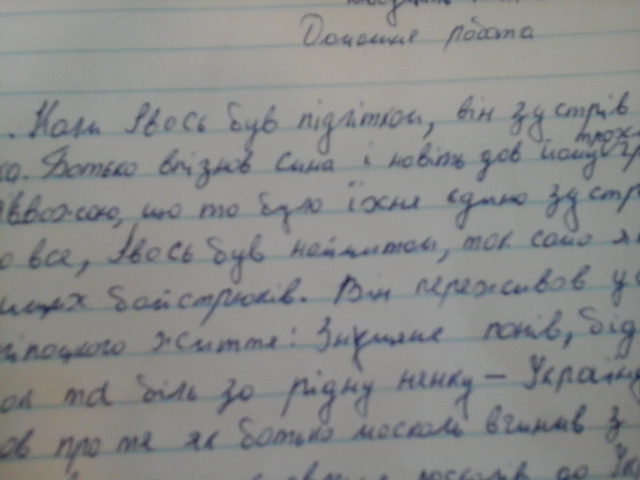 Домашня робота
. Коли Івось був підлітком, він зустрів
трохи
ко. Батько впізнав сина і навіть дав йому гр
вважаю, що то була їхня єдина зустр
о все, Івось був наймитом, так само як
інших байстрюків. Він переживав ус
кріпацкого життя: Знущяне панів, бід
ок та біль за рідну неньку – Україну
ов про те як батько москаль вчинив з
москалів до Укр